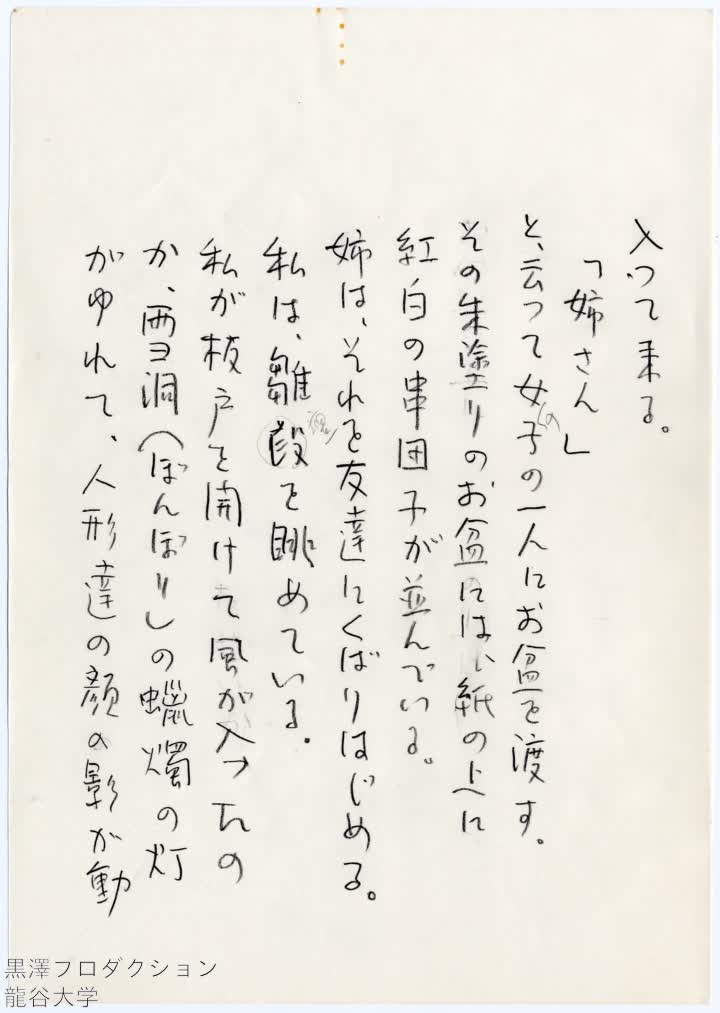 入って来る。
「姉さん」
と、云って女の子の一人にお盆を渡す。
その朱塗りのお盆には、紙の上に
紅白の串団子が並んでいる。
姉は、それを友達にくばりはじめる。
私は、雛段を眺めている。
私が板戸を開けて風が入ったの
か、雪洞（ぼんぼり）の蠟燭の灯
がゆれて、人形達の顔の影が動
黒澤プロダクション
龍谷大学